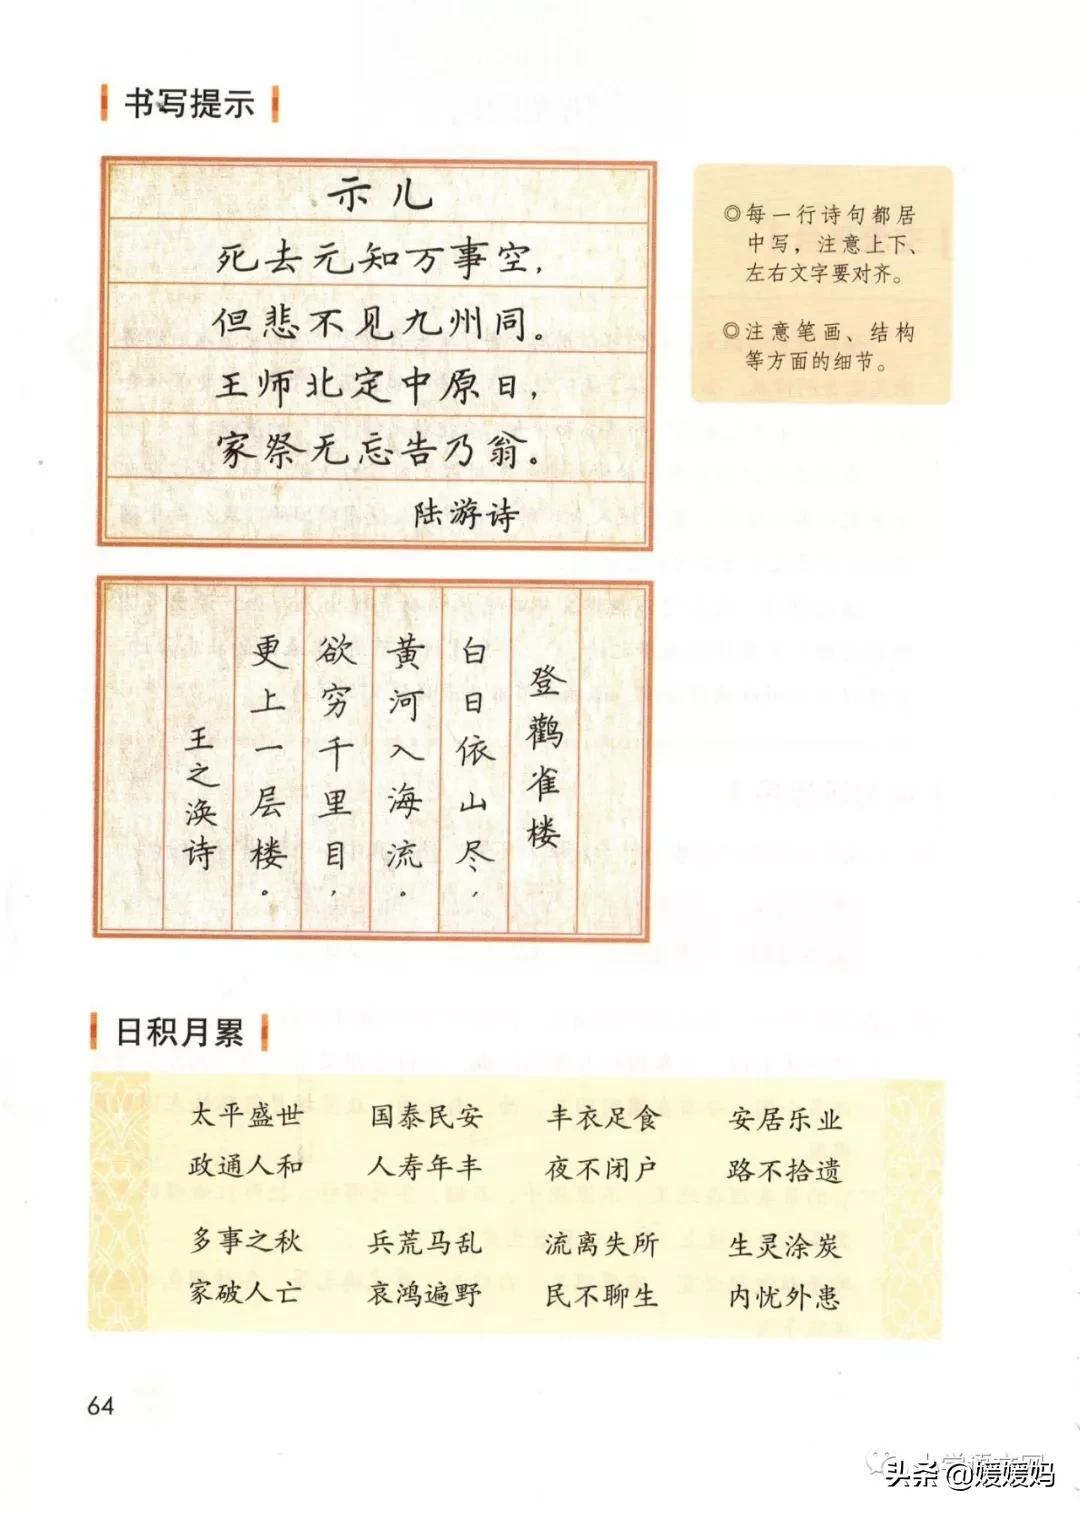 书写提示
示儿
死去元知万事空，
但悲不见九州同。
王师北定中原日，
家祭无忘告乃翁。
陆游诗
◎每一行诗句都居
中写，注意上下、
左右文字要对齐。
◎注意笔画、结构
等方面的细节。
登鹳雀楼
白日依山尽，
黄河入海流。
欲穷千里目，
更上一层楼。
王之涣诗
日积月累
太平盛世 国泰民安 丰衣足食 安居乐业
政通人和 人寿年丰 夜不闭户 路不拾遗
多事之秋 兵荒马乱 流离失所 生灵涂炭
家破人亡 哀鸿遍野 民不聊生 内忧外患
64
头条 @媛媛妈